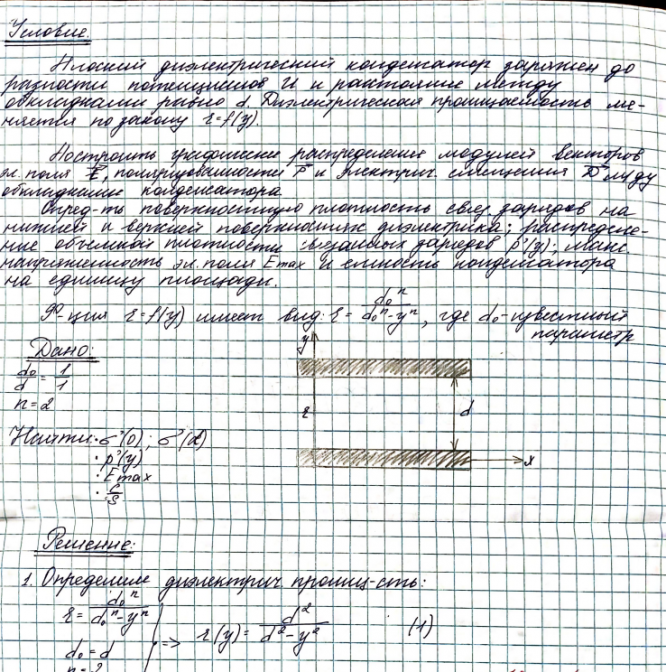 Условие.
Плоский диэлектрический конденсатор заряжен до
разности потенциалов U и расстояние между
обкладками равно d. Диэлектрическая проницаемость ме-
няется по закону ε=f(y).
Построить графически распределения модулей векторов
эл. поля E, поляризованности P и электрич. смещения D между
обкладками конденсатора
Опред-ть поверхностную плотность связ. зарядов на
нижней и верхней поверхностях диэлектрика; распределе-
ние объёмной плотности связанных зарядов ρ'(y); макс.
напряженность эл. поля Emax и ёмкость конденсатора
на единицу площади.
Ф-ция ε=f(y) имеет вид: ε = d₀ⁿ/(d₀ⁿ-yⁿ), где d₀-известный
параметр
Дано:
d₀/d = 1/1
n=2
Найти: σ'(0); σ'(d)
· ρ'(y)
· Emax
· C/S
y
ε
d
x
Решение:
1. Определим диэлектрич. прониц-сть:
ε = d₀ⁿ/(d₀ⁿ-yⁿ)
d₀=d
n=2
=> ε(y) = d²/(d²-y²) (1)